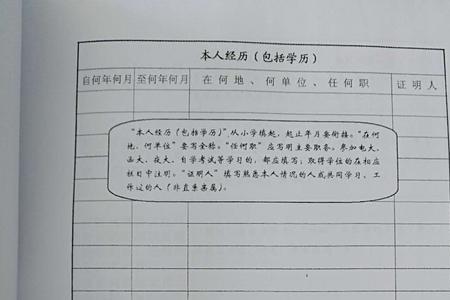 本人经历(包括学历)
自何年何月 至何年何月 在何地、何单位、任何职 证明人
“本人经历(包括学历)”从小学填起,起止年月要衔接。“在何
地、何单位”要写全称。“任何职”应写明主要职务。参加电大、
函大、夜大、自学考试等学习的,都应填写;取得学位的在相应
栏目中注明。“证明人”填写熟悉本人情况的人或共同学习、工
作过的人(非直系亲属)。